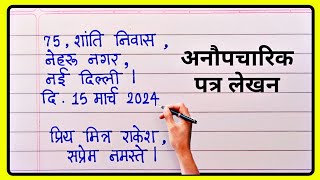 75, शांति निवास,
नेहरू नगर,
नई दिल्ली।
दि. 15 मार्च 2024
प्रिय मित्र राकेश,
सप्रेम नमस्ते।
अनौपचारिक
पत्र लेखन